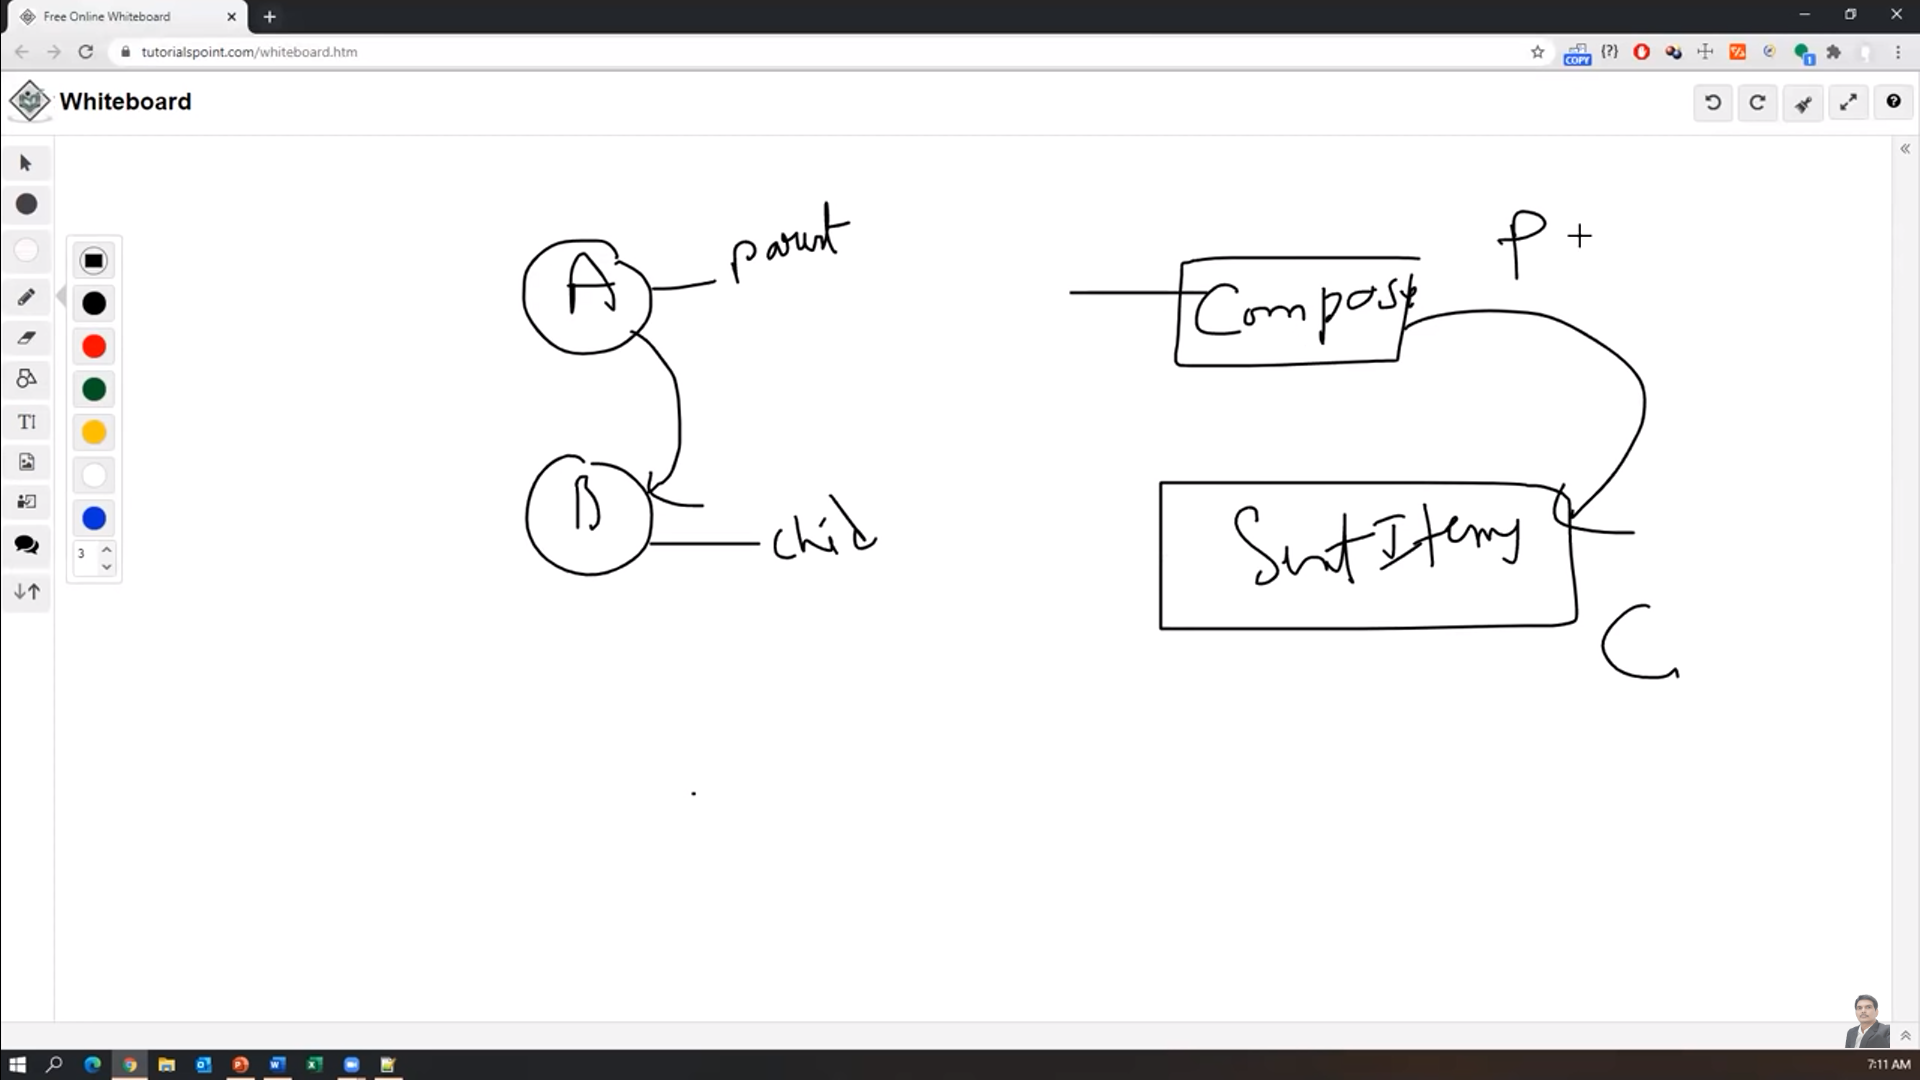 Free Online Whiteboard
tutorialspoint.com/whiteboard.htm
COPY
{?}
1
Whiteboard
TI
3
A
parent
B
child
P
Compose
Sent Items
C
7:11 AM